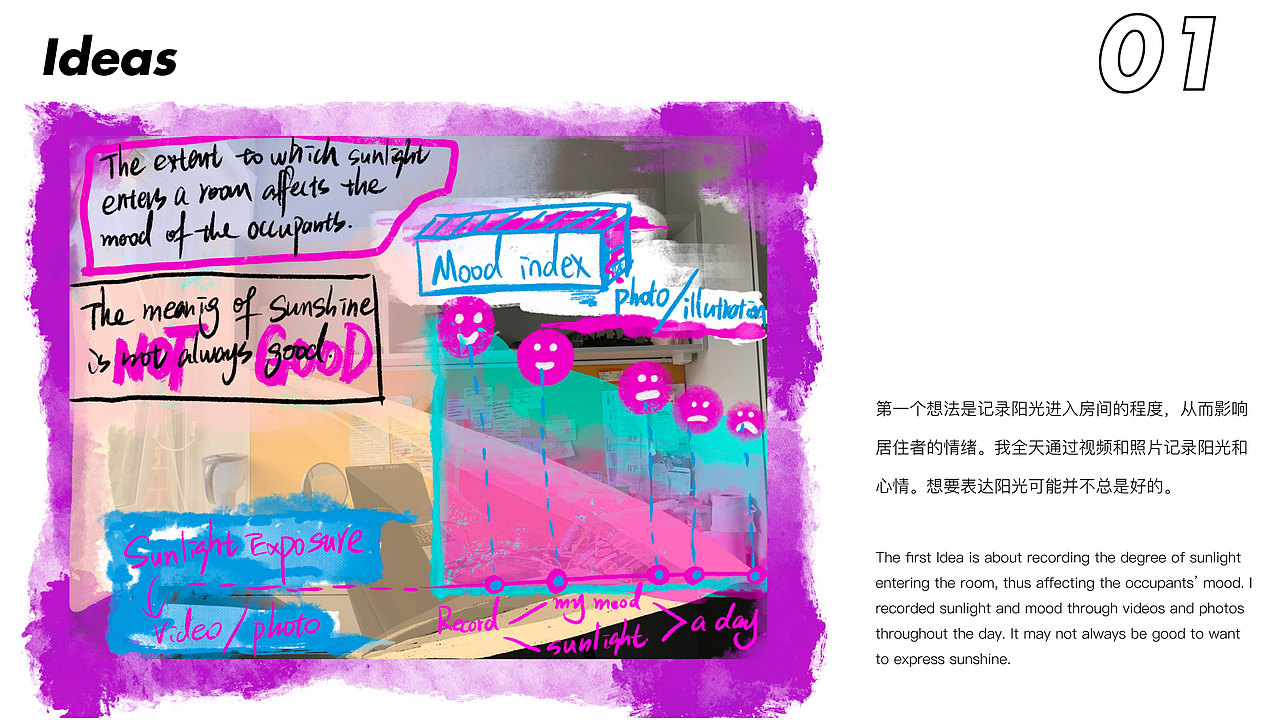 Ideas
01
The extent to which sunlight
enters a room affects the
mood of the occupants.
The meanig of sunshine
is not always good.
NOT GOOD
Mood index
photo/illustration
Sunlight Exposure
video/photo
Record
my mood
sunlight
a day
第一个想法是记录阳光进入房间的程度，从而影响
居住者的情绪。我全天通过视频和照片记录阳光和
心情。想要表达阳光可能并不总是好的。
The first Idea is about recording the degree of sunlight
entering the room, thus affecting the occupants’ mood. I
recorded sunlight and mood through videos and photos
throughout the day. It may not always be good to want
to express sunshine.